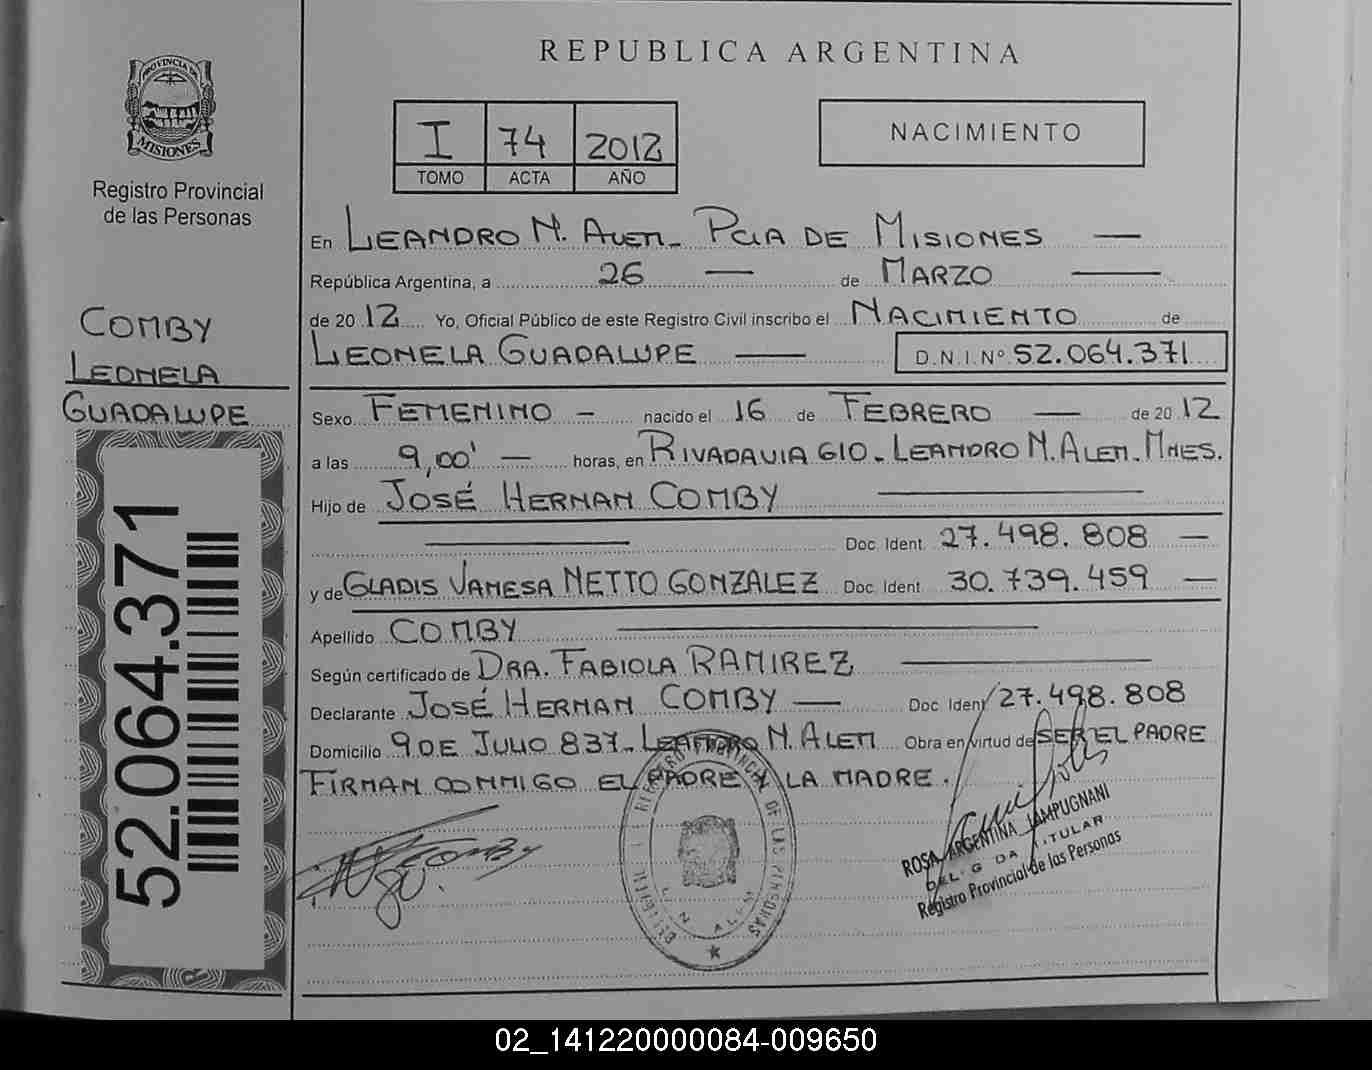 REPUBLICA ARGENTINA
PROVINCIA DE
MISIONES
Registro Provincial
de las Personas
I 74 2012
TOMO ACTA AÑO
NACIMIENTO
En LEANDRO N. ALEM - PCIA DE MISIONES —
República Argentina, a 26 — de MARZO —
de 2012 Yo, Oficial Público de este Registro Civil inscribo el NACIMIENTO de
LEONELA GUADALUPE — D.N.I. Nº 52.064.371
COMBY
LEONELA
GUADALUPE
Sexo FEMENINO - nacido el 16 de FEBRERO — de 2012
a las 9,00' — horas, en RIVADAVIA 610 - LEANDRO N. ALEM - MNES.
Hijo de JOSÉ HERNAN COMBY —
— Doc. Ident. 27.498.808 —
y de GLADIS VANESA NETTO GONZALEZ Doc. Ident. 30.739.459 —
Apellido COMBY —
Según certificado de DRA. FABIOLA RAMIREZ —
Declarante JOSÉ HERNAN COMBY — Doc. Ident 27.498.808
Domicilio 9 DE JULIO 837 - LEANDRO N. ALEM Obra en virtud de SER EL PADRE
FIRMAN CONMIGO EL PADRE Y LA MADRE.
52.064.371
COMBY
DE LAS PERSONAS
ROSA ARGENTINA LAMPUGNANI
TITULAR
Registro Provincial de las Personas
02_141220000084-009650